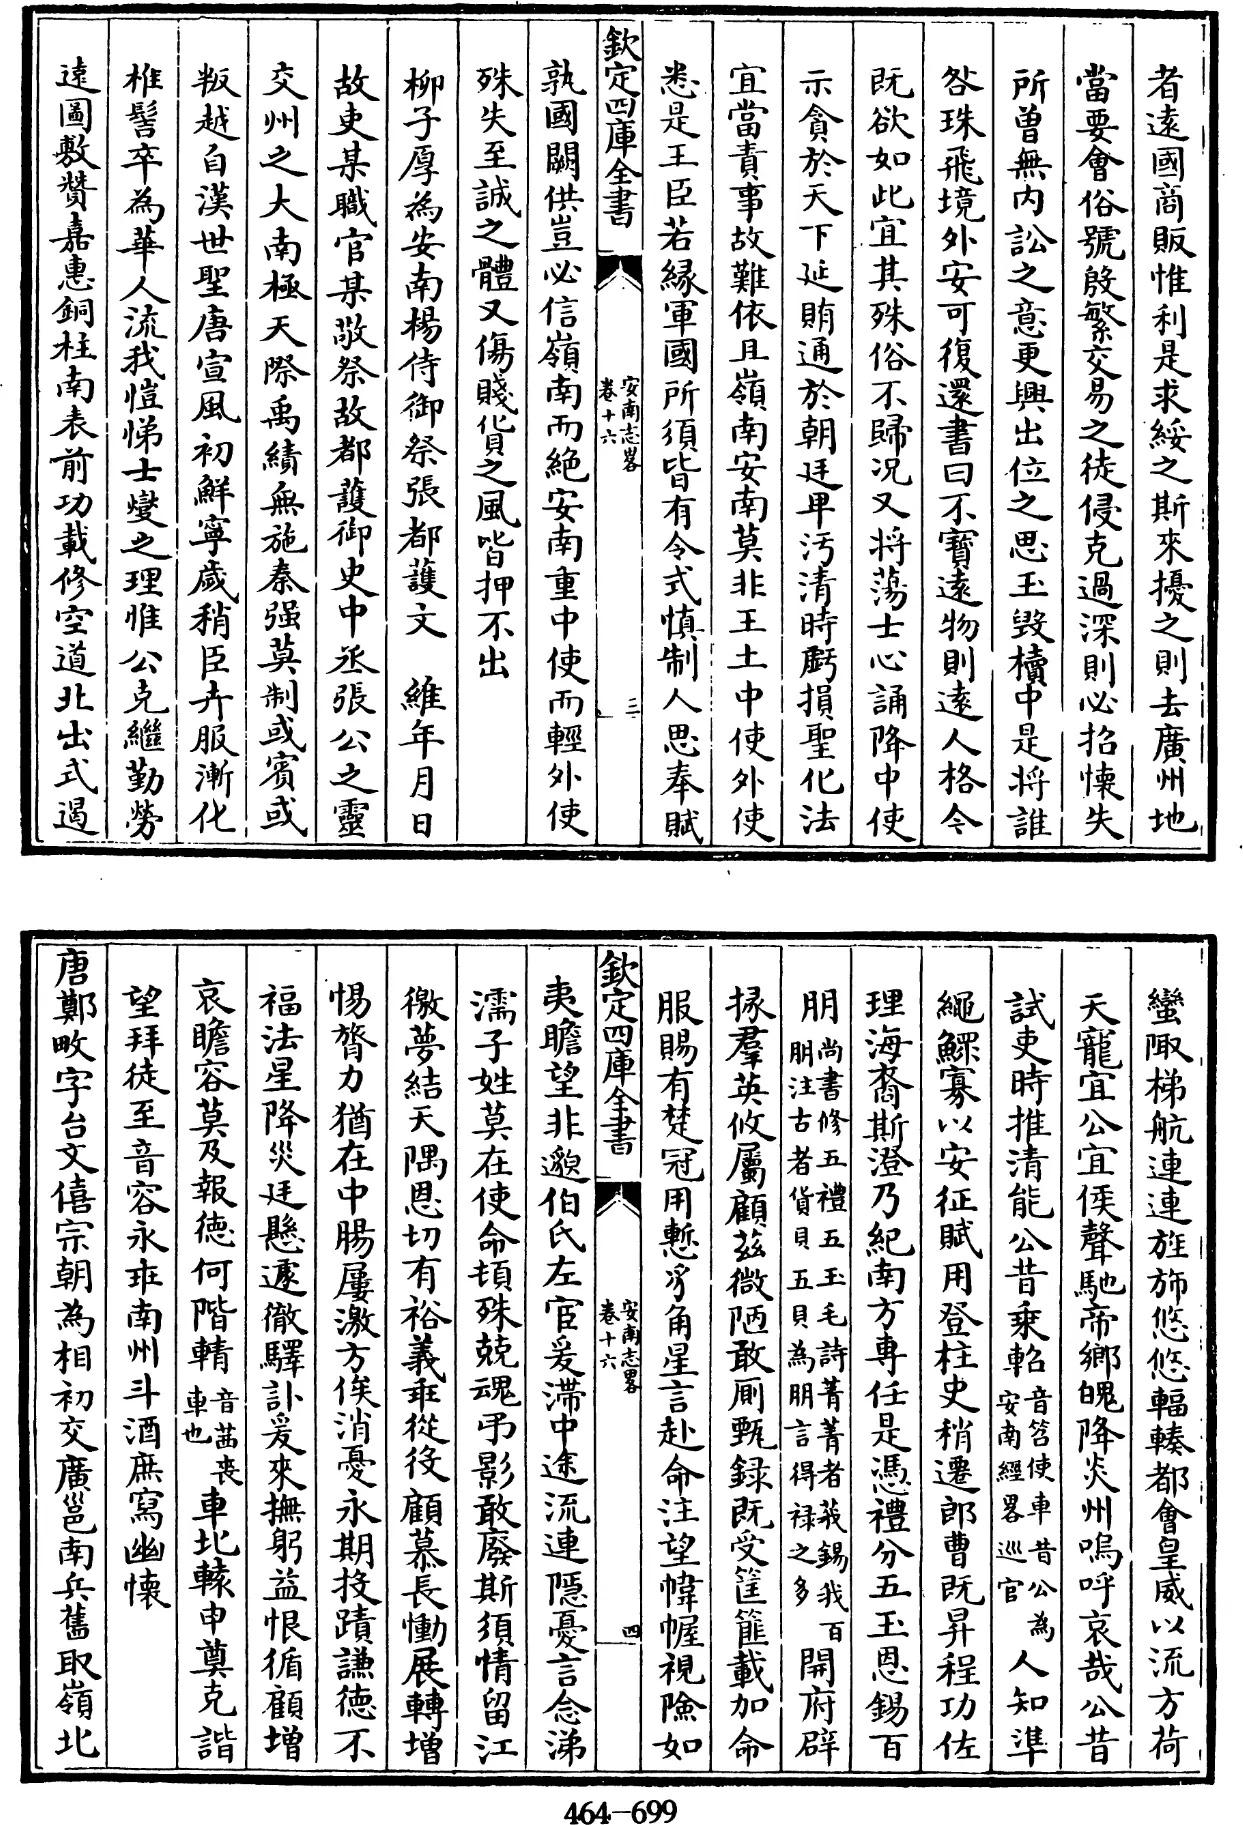 者遠國商販惟利是求綏之斯來擾之則去廣州地
當要會俗號殷繁交易之徒侵克過深則必招懷失
所曾無内訟之意更興出位之思玉毀櫝中是將誰
咎珠飛境外安可復還書曰不寶遠物則遠人格今
既欲如此宜其殊俗不歸况又將蕩士心誦降中使
示貪於天下延賄通於朝廷卑汚清時虧損聖化法
宜當責事故難依且嶺南安南莫非王土中使外使
悉是王臣若緣軍國所須皆有令式慎制人思奉賦
欽定四庫全書
安南志畧
卷十六
三
孰國闕供豈必信嶺南而絶安南重中使而輕外使
殊失至誠之體又傷賤貨之風皆押不出
柳子厚為安南楊侍御祭張都護文　維年月日
故吏某職官某敬祭故都護御史中丞張公之靈
交州之大南極天際禹績無施秦强莫制或賓或
叛越自漢世聖唐宣風初鮮寧歲稍臣卉服漸化
椎髻卒為華人流我愷悌士燮之理惟公克繼勤勞
遠圖敷贊嘉惠銅柱南表前功載修空道北出式遏
蠻陬梯航連連旌斾悠悠輻輳都會皇威以流方荷
天寵宜公宜侯聲馳帝鄉魄降炎州嗚呼哀哉公昔
試吏時推清能公昔乗軺音笤使車昔公為安南經畧巡官人知準
繩鰥寡以安征賦用登柱史稍遷郎曹既昇程功佐
理海裔斯澄乃紀南方專任是憑禮分五玉恩錫百
朋尚書修五禮五玉毛詩菁菁者莪錫我百朋注古者貨貝五貝為朋言得禄之多開府辟
掾羣英攸屬顧兹微陋敢厠甄録既受筐篚載加命
服賜有楚冠用慙豸角星言赴命注望幃幄視險如
欽定四庫全書
安南志畧
卷十六
四
夷瞻望非邈伯氏左宦爰滯中途流連隱憂言念涕
濡子姓莫在使命頓殊兢魂弔影敢廢斯須情留江
徼夢結天隅恩切有裕義乖從役顧慕長慟展轉增
惕膂力猶在中腸屢激方俟消憂永期投蹟謙德不
福法星降災廷懸遽徹驛訃爰來撫躬益恨循顧增
哀瞻容莫及報德何階輤音茜喪車也車北轅申奠克諧
望拜徒至音容永乖南州斗酒庶寫幽懷
唐鄭畋字台文僖宗朝為相初交廣邕南兵舊取嶺北
464—699